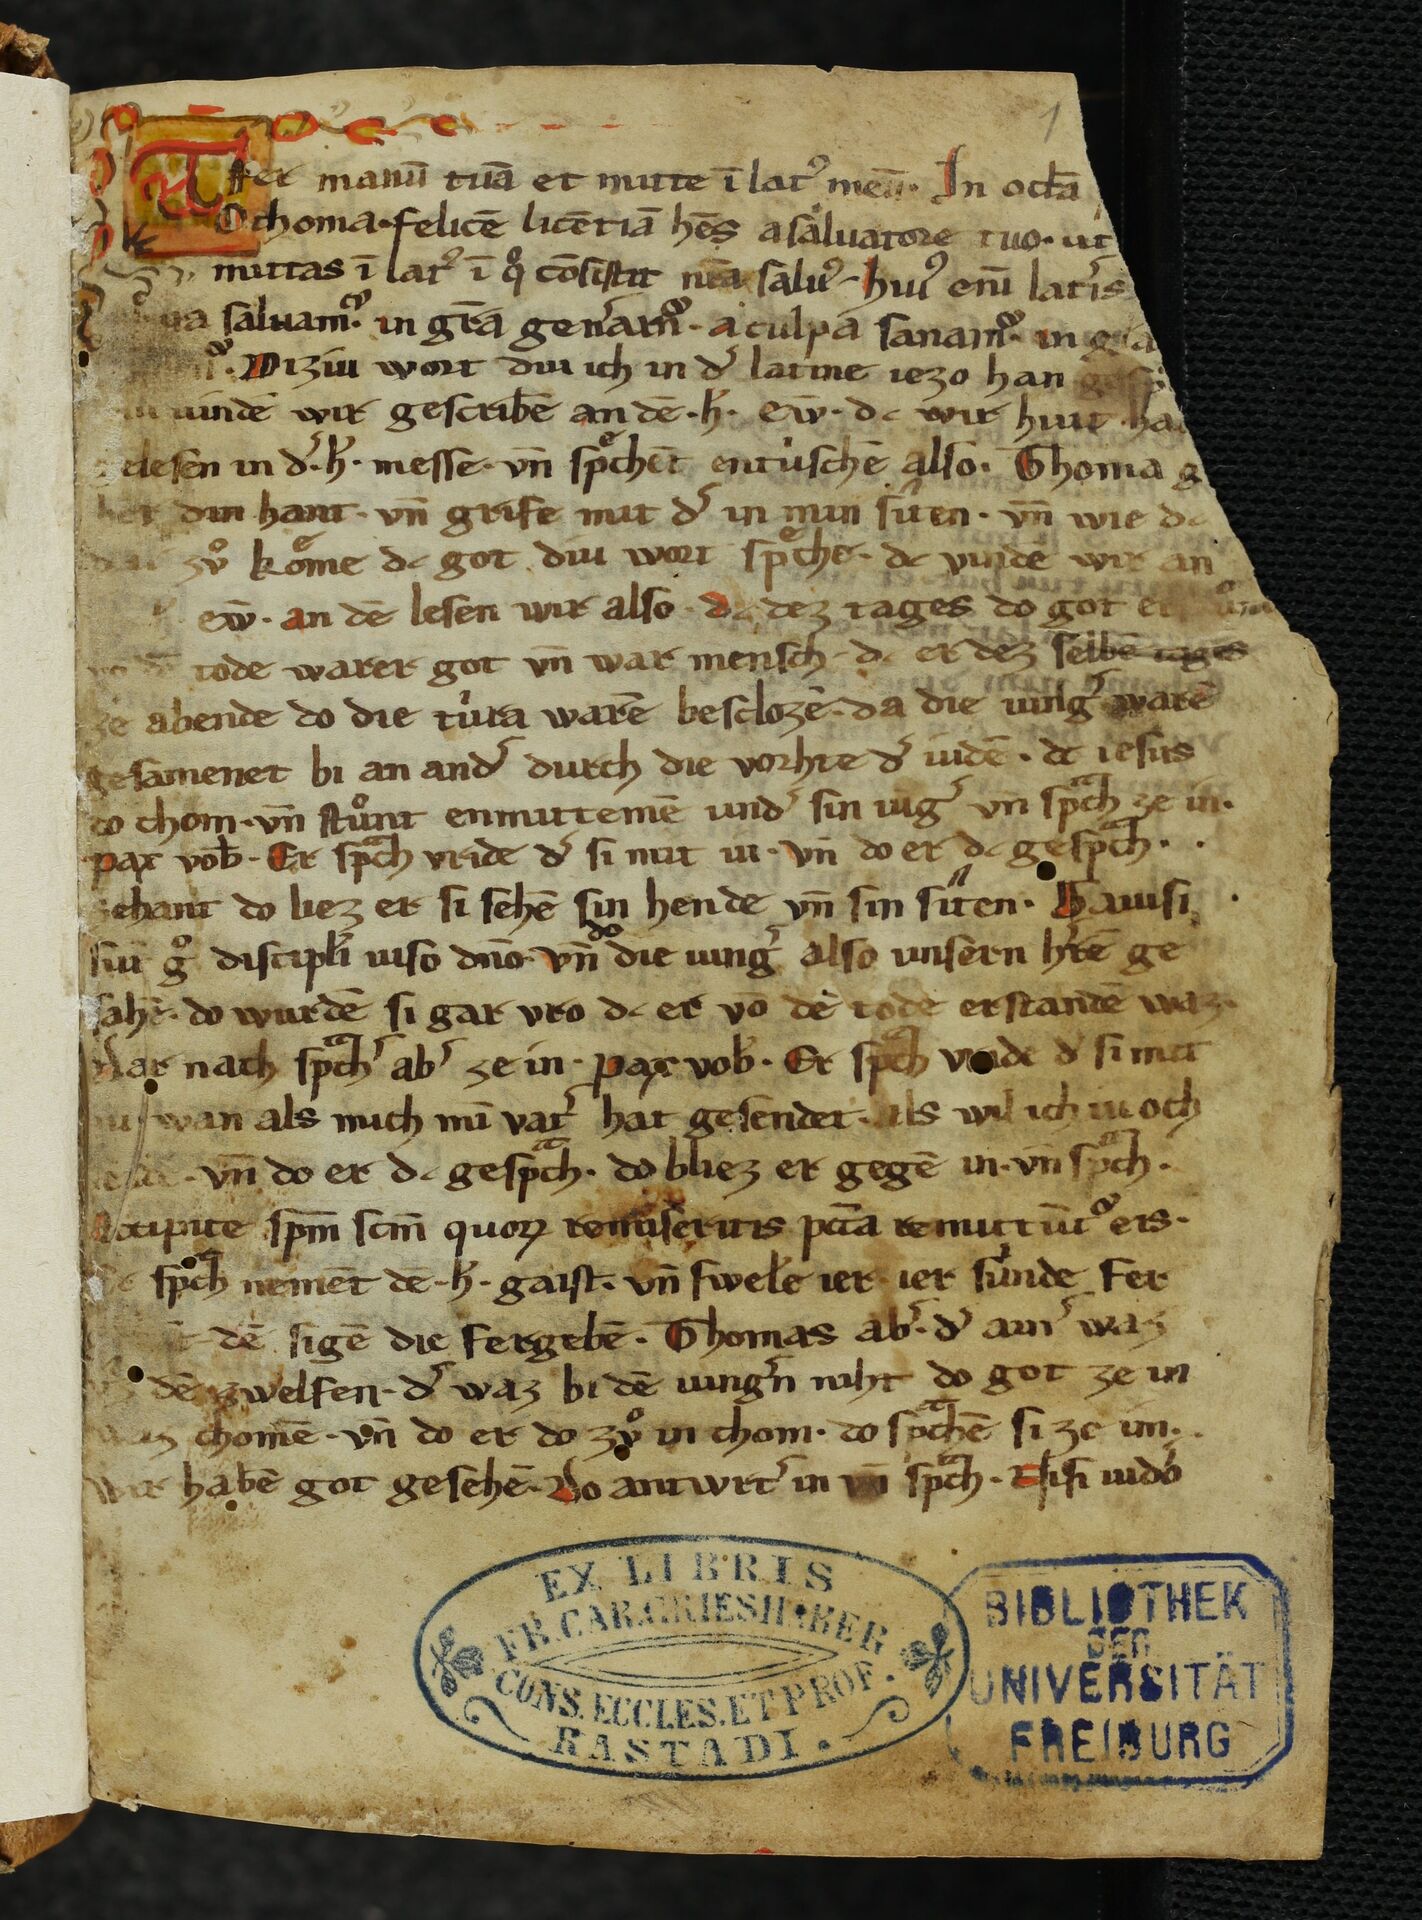 1
Affer manū tuā et mitte ī latꝰ meū. In octā
O thoma. felicē licētiā hēs a saluatore tuo. ut
mittas ī latꝰ ī qͦ cōsistit nr̄a salus. huiꝰ enī lateris
saluamur. in gr̄a gen̓amur. a culpa sanamur. in
Diziu wort diu ich in d̓ latine iezo han
uindē wir gescribē an dē .h̓. ew̄. dc wir hiut
gelesen in d̓ .h̓. messe. vn̄ sp̄chēt entúschē also. Thoma
din hant. vn̄ grife mit d̓ in min siten. vn̄ wie dc
zvͦ kome dc got diu wort sp̄che. dc vindē wir an
ew̄. an dē lesen wir also. dc dez tages do got
tode warer got vn̄ war mensch. dc er dez selbē tages
ze abende do die túra warē besclozē. da die iung̓ warē
gesamenet bi an and̓ durch die vorhte d̓ iudē. dc iesus
do chom. vn̄ stuͦnt enmittemē und̓ sin iūg̓ vn̄ spͣch ze in.
pax vob̓. Er spͣch vride d̓ si mit iu. vn̄ do er dc gespͣch.
zehant do liez er si sehē sin hende vn̄ sin siten. Gauisi
sūt gͦ discipl̓i uiso dn̄o. vn̄ do die iung̓ also unsern h̓rē ge
sahē. do wurdē si gar vro dc er vō dē tode erstandē waz.
Dar nach spͣch̓ ab̓ ze in. pax vob̓. Er spͣch vride d̓ si mit
iu wan als mich mī vat̓ hat gesendet. als wil ich iu och
vn̄ do er dc gespͣch. do bliez er gegē in. vn̄ spͣch.
Accipite sp̄m sc̄m quoꝝ remiseritis pc̄ta remittūt͛ eis.
spͣch nemēt dē .h̓. gaist. vn̄ swele ier ier súnde fer
dē sigē die fergebē. Thomas ab̓. d̓ ain̓ waz
dē zwelfen. d̓ waz bi dē iung̓n niht do got ze in
chomē. vn̄ do er do zvͦ in chom. do spͣchē si ze im.
wir habē got gesehē. Do antwrt̓ in vn̄ spͣch. Nisi uid̓o
EX LIBRIS
FR. CAR. GRIESHABER
CONS. ECCLES. ET PROF.
RASTADI.
BIBLIOTHEK
DER
UNIVERSITÄT
FREIBURG